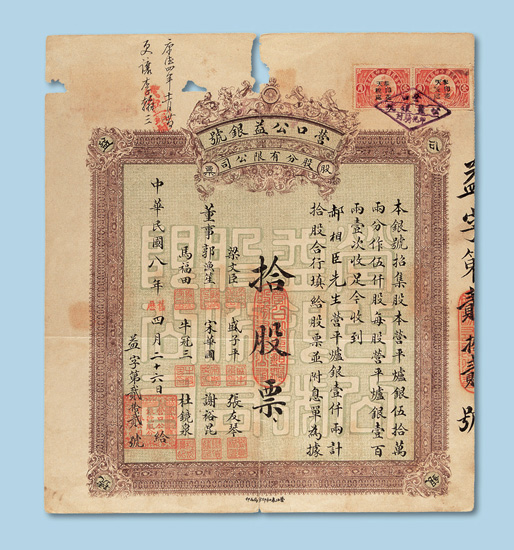 營口公益銀號
股分有限公司股票
本銀號招集股本營平爐銀伍拾萬
兩分作伍仟股每股營平爐銀壹百
兩壹次收足今收到
郝相臣先生營平爐銀壹仟兩計
拾股合行填給股票並附息單為據
拾股票
董事
郭漁笙
馬福田
梁文臣
戚子平
張友琴
宋華國
謝裕昆
牛冠三
杜鏡泉
中華民國八年四月二十六日給
益字第貳拾貳號
益字第貳拾貳號
公益銀號